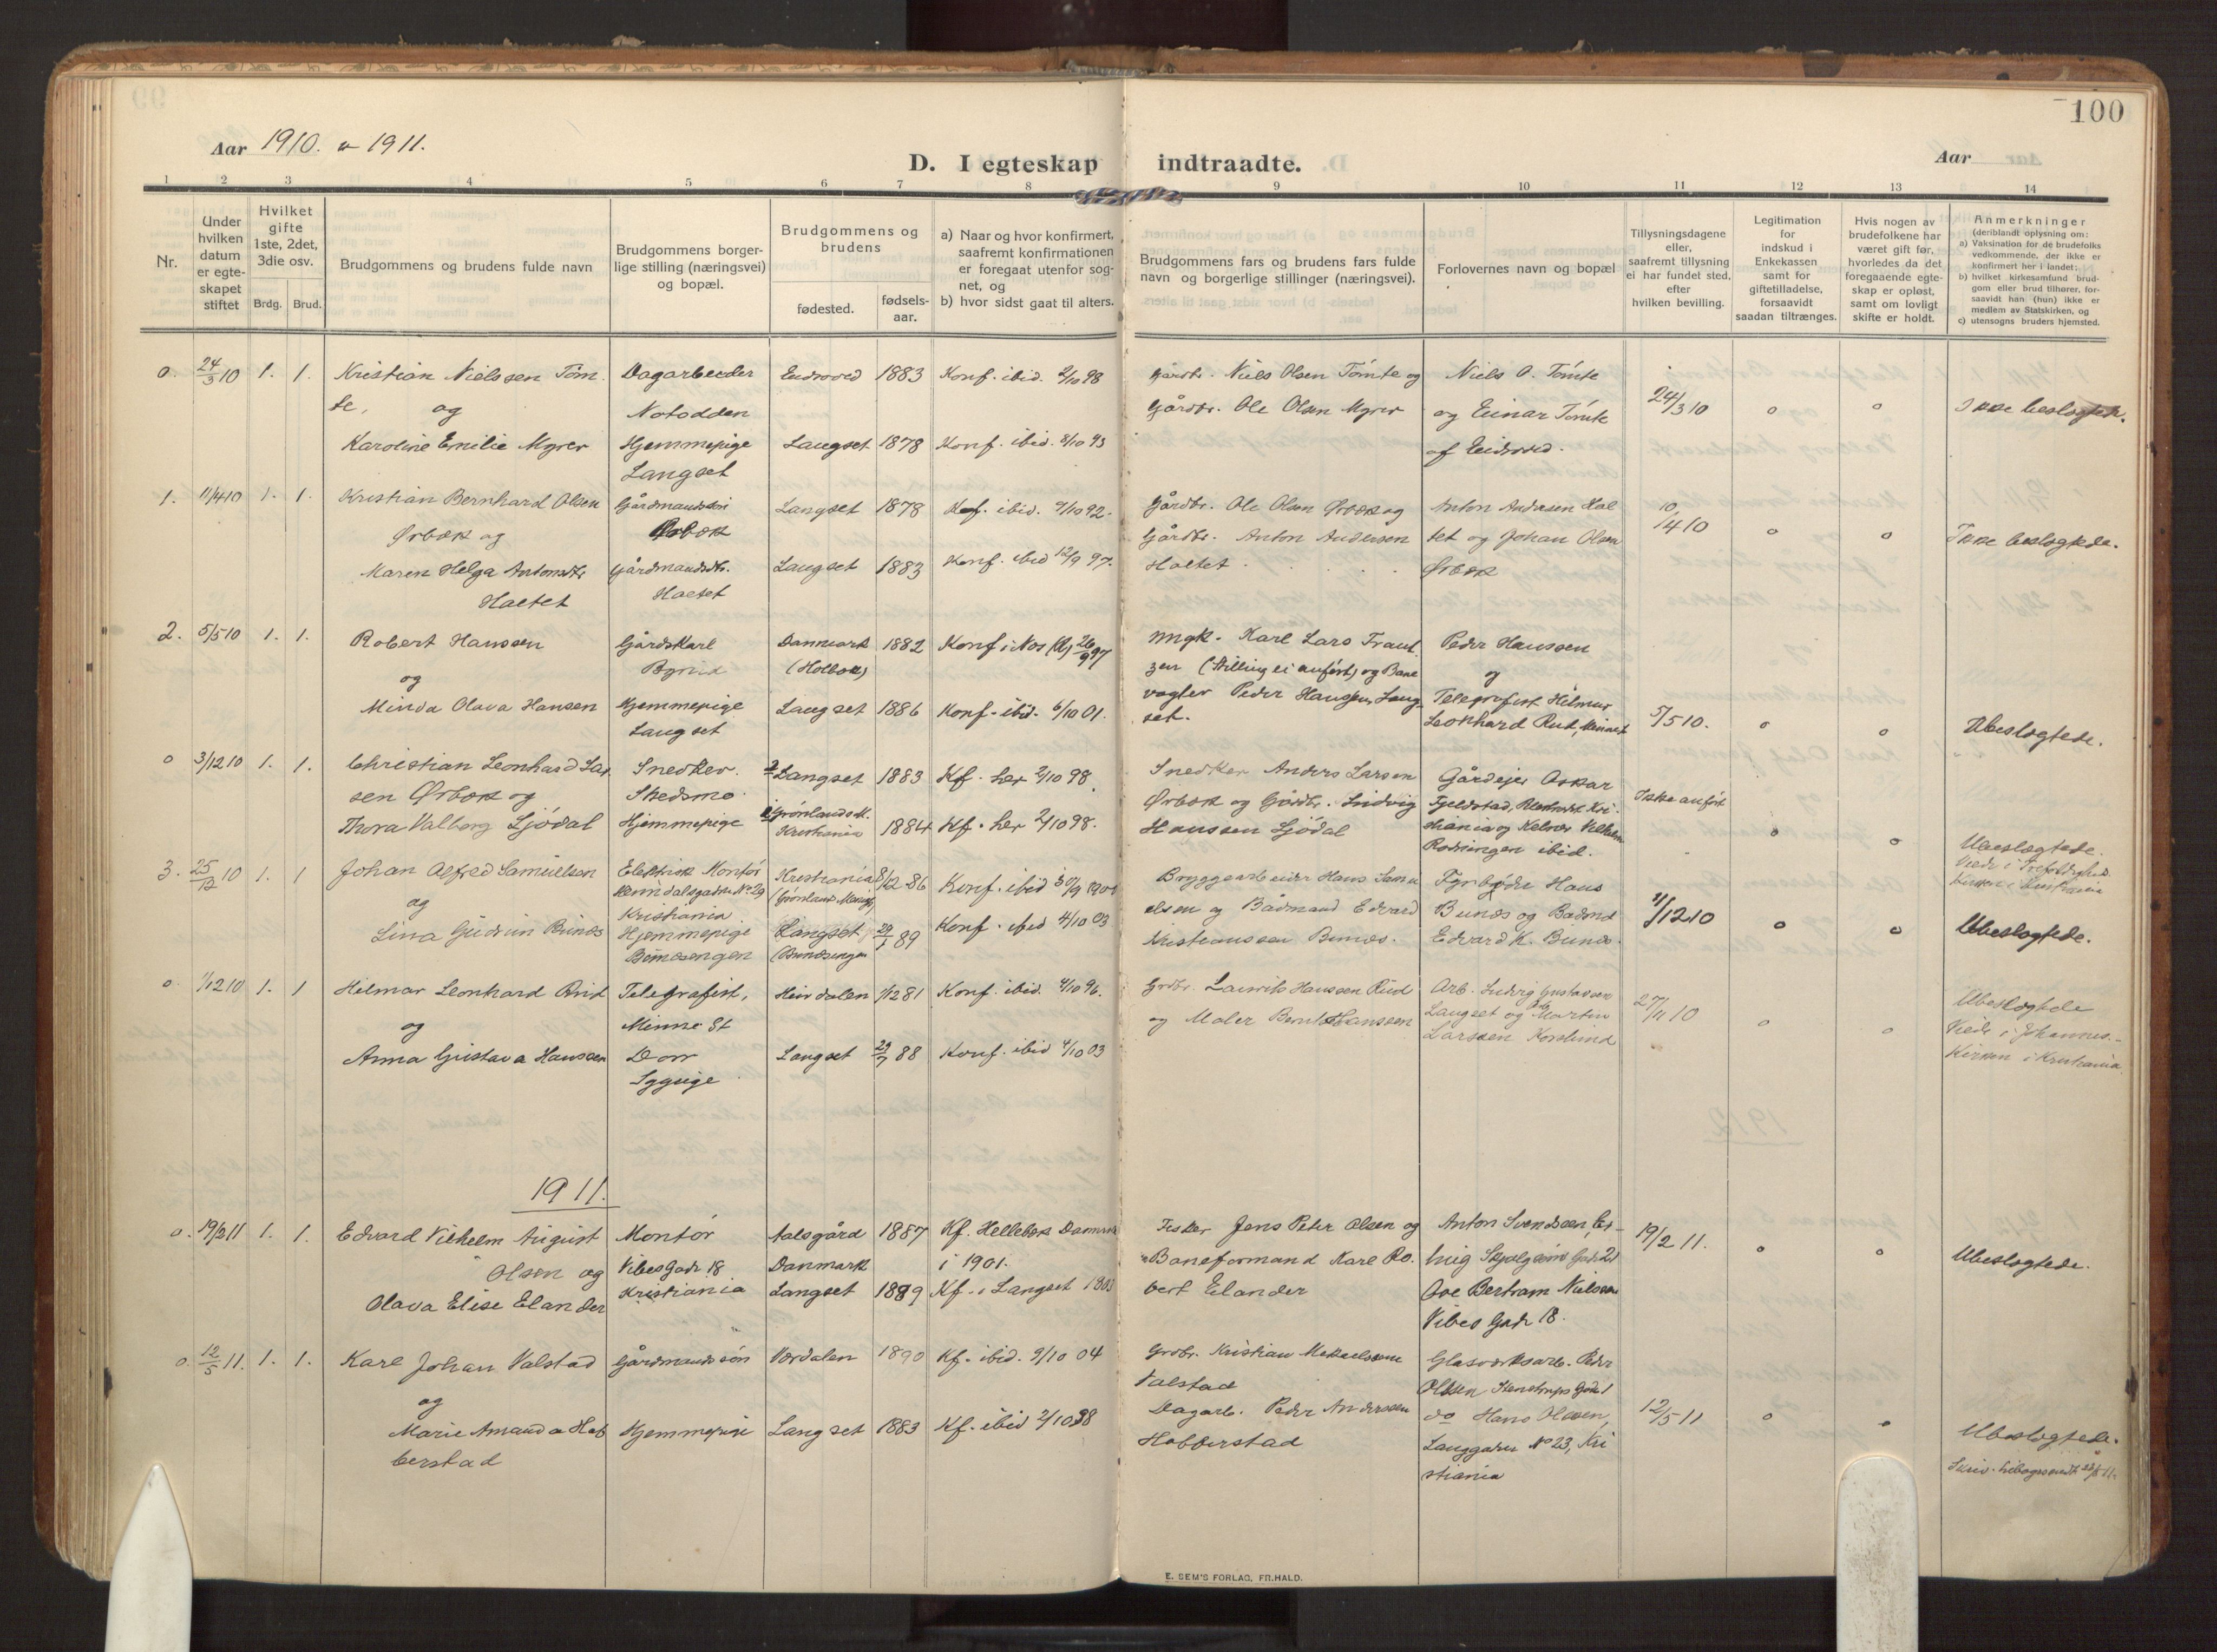 100
Aar 1910. & 1911.
D. I egteskap indtraadte.
Aar
1 2 3 4 5 6 7 8 9 10 11 12 13 14
Nr.
Under hvilken datum er egteskapet stiftet
Hvilket gifte 1ste, 2det, 3die osv.
Brdg. Brud.
Brudgommens og brudens fulde navn
Brudgommens borger-
lige stilling (næringsvei)
og bopæl.
Brudgommens og
brudens
fødested.
fødsels-
aar.
a) Naar og hvor konfirmert,
saafremt konfirmationen
er foregaat utenfor sog-
net, og
b) hvor sidst gaat til alters.
Brudgommens fars og brudens fars fulde
navn og borgerlige stillinger (næringsvei).
Forlovernes navn og bopæl
Tillysningsdagene
eller,
saafremt tillysning
ei har fundet sted,
efter
hvilken bevilling.
Legitimation
for
indskud i
Enkekassen
samt for
giftetilladelse,
forsaavidt
saadan tiltrænges.
Hvis nogen av
brudefolkene har
været gift før,
hvorledes da det
foregaaende egte-
skap er opløst,
samt om lovligt
skifte er holdt.
Anmerkninger
(deriblandt oplysning om:
a) Vaksination for de brudefolks
vedkommende, der ikke er
konfirmert her i landet;
b) hvilket kirkesamfund brud-
gom eller brud tilhører, for-
saavidt han (hun) ikke er
medlem av Statskirken, og
c) utensogns bruders hjemsted.
o. 24/3 10 1. 1.
Kristian Nielssen Töm
te, og
Karoline Emilie Myrer
Dagarbeider
Notodden
Hjemmepige
Langset
Eidsvold 1883 Konf. ibid. 2/10 98
Langset 1878 Konf. ibid. 8/10 93
Gårdbr. Niels Olsen Tömte og
Gårdbr. Ole Olsen Myrer
Niels O. Tömte
og Einar Tömte
af Eidsvold.
24/3 10 o o Ikke beslogtede.
1. 11/4 10 1. 1.
Kristian Bernhard Olsen
Ørbæk og
Maren Helga Antonsdtr
Haltet
Gårdmandssön
Ørbæk
Gårdmandsdtr.
Haltet
Langset 1878 Kof. ibid. 9/10 92.
Langset 1883 Konf. ibid 12/9 97.
Gårdbr. Ole Olsen Ørbæk og
Gårdbr. Anton Andersen
Haltet
Anton Andersen Hal
tet og Johan Olsen
Ørbæk
10/4 10 o o Ikke beslogtede.
2. 5/5 10 1. 1.
Robert Hanssen
og
Minda Olava Hansen
Gårdskarl
Hjemmepige
Langset
Danmark
(Holbæk)
1882 Konf i Nes 26/9 97
Langset 1886 Konf. ibid. 6/10 01.
Ungk. Karl Lars Frant
zen (Stilling ei anfört) og Bane
vogter Peder Hanssen, Lang
set.
Peder Hanssen
og
Telegrafist Hilmar
Leonhard Rud, Minnest
5/5 10. o o Ubeslogtede.
o 3/12 10 1. 1.
Christian Leonhard Lar
sen Ørbæk og
Thora Valborg Ljödal
Snedker.
Skedsmo.
Hjemmepige
Grönlands M.
Kristiania
Langset 1883 Kf. her 2/10 98.
1884 Kf. her 2/10 98.
Snedker Anders Larsen
Ørbæk og Gårdbr. Ludvig
Hanssen Ljödal
Gårdejer Oskar
Fjeldstad, Kri
stiania og Kelner Vilhelm
Rodningen ibid.
Ikke anfört
o o Ubeslogtede.
Viede i Trefoldigheds
Kirken i Kristiania
3. 25/12 10 1. 1
Johan Alfred Samuelsen
og
Lina Gudrun Bunæs
Elektrisk Montör
Kristiania
Hjemmepige
Bunæsengen
Kristiania 8/12 86
Langset 29/1 89
(Bunæsengen
Konf. ibid 30/9 1900
Konf. ibid 4/10 03
Bryggearbeider Hans Samu
elsen og Bådmand Edvard
Kristianssen Bunæs.
Fyrböder Hans
Bunæs og Bådmd
Edvard K. Bunæs.
11/12 10 o o Ubeslogtede.
o 1/12 10 1. 1
Hilmar Leonhard Rud
og
Anna Gustava Hanssen
Telegrafist,
Minne St
Dorr
Sypige
Heirdalen 1/12 81 Konf. ibid. 4/10 96.
Langset 29/7 88 Konf. ibid 4/10 03
Grdbr. Laurits Hanssen Rud
og Maler Bernt Hanssen
Arb. Ludvig Gustavsen
Langset og Martin
Larssen Korslund
27/11 10 o o
Ubeslogtede
Viede i Johannes-
Kirken i Kristiania.
1911.
o. 19/2 11 1. 1.
Edvard Vilhelm August
Olsen og
Olava Elise Elander
Montör
Vibes Gade 18
Kristiania
Aalsgård
Danmark
Langset
1887 Kf. Hellebæk Danmark
i 1901.
1889 Kf. i Langset 1903
Fisker Jens Peter Olsen og
Baneformand Karl Ro
bert Elander
Anton Svendsen,
Gade 21
Ove Bertram Nielssen
Vibes Gade 18.
19/2 11. o o Ubeslogtede.
o. 12/5 11. 1. 1.
Karl Johan Valstad
og
Marie Amanda Hob
berstad
Gårdmandssön
Hjemmepige
Værdalen 1890 Kf. ibid. 9/10 04
Langset 1883 Kf. ibid 2/10 98
Grdbr. Kristian
Valstad
Dagarb. Peder Anderssen
Hobberstad
Glasværksarb. Peder
Olssen Stenstrups Gade 1
do Hans Olssen,
Langgaden No 23, Kri
stiania
12/5 11 o o Ubeslogtede.
E. SEM'S FORLAG, FR.HALD.